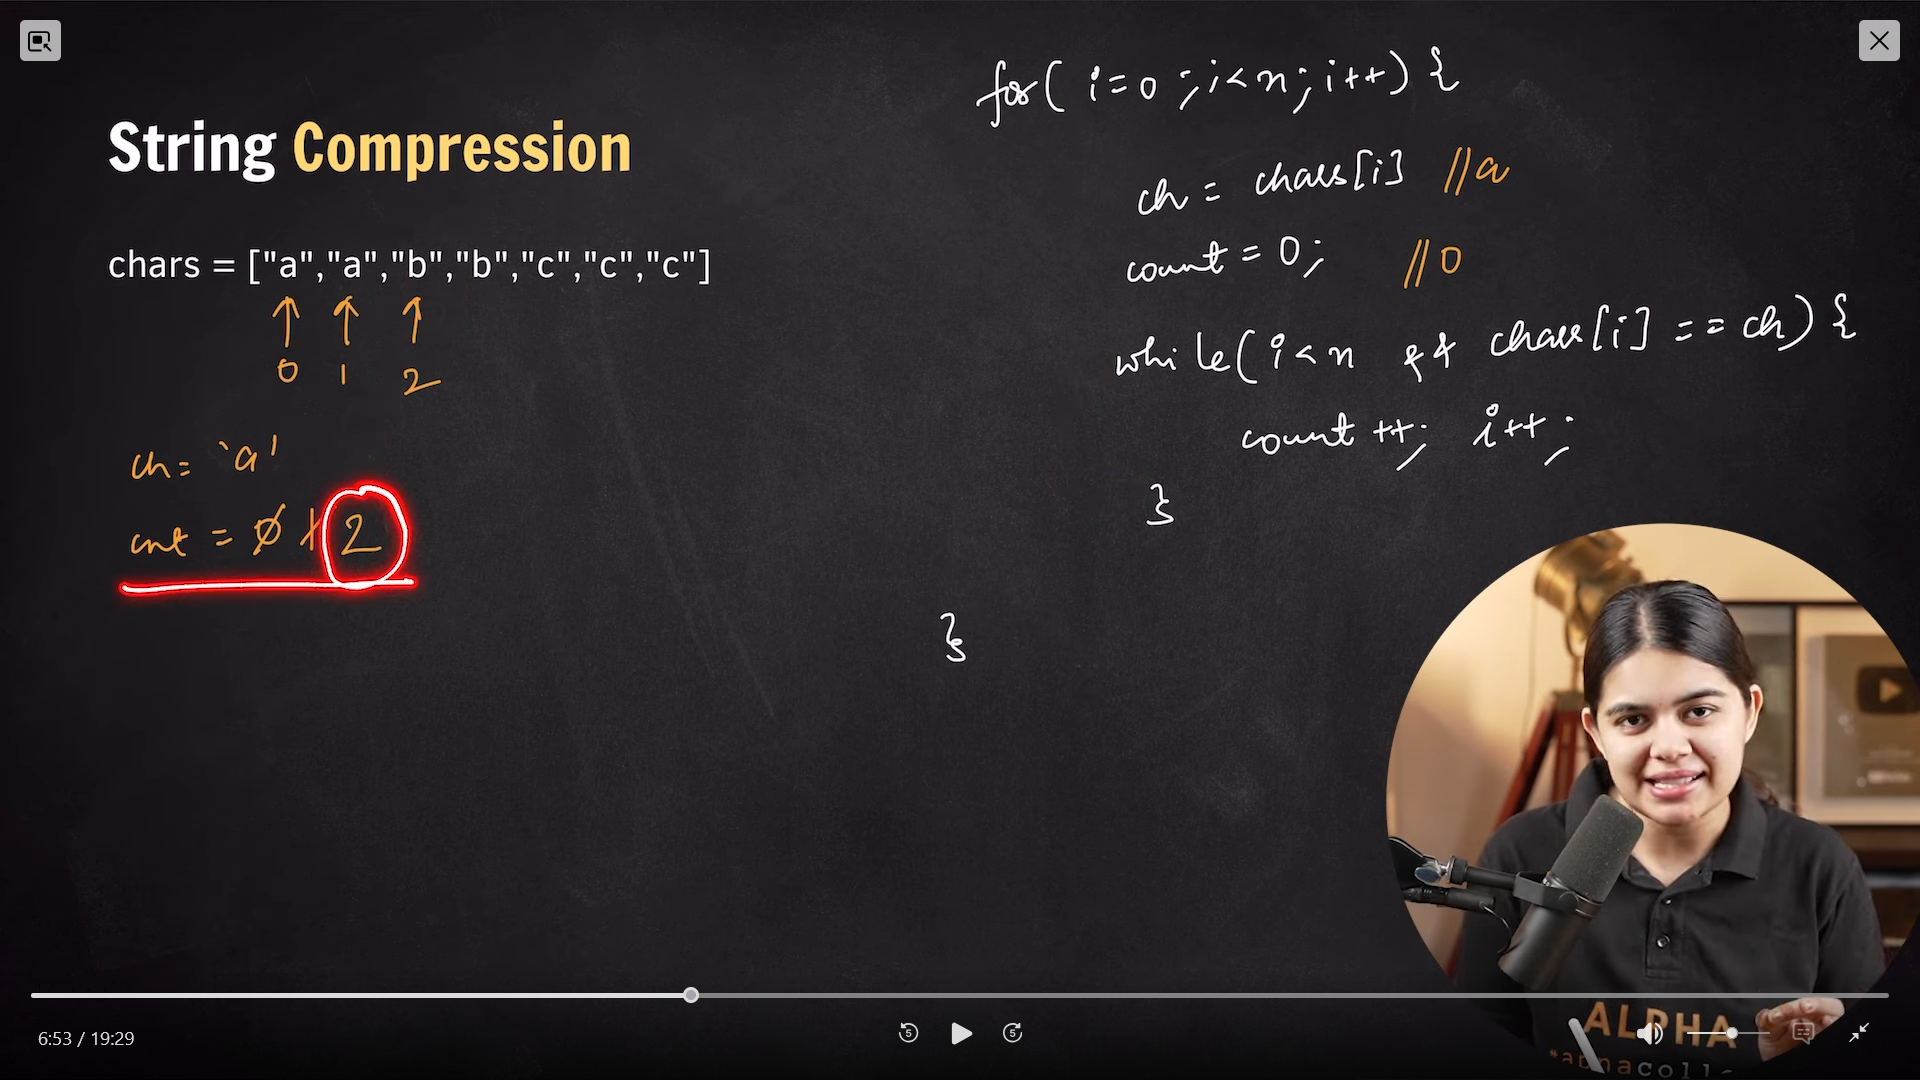 String Compression
chars = ["a","a","b","b","c","c","c"]
0 1 2
ch = 'a'
cnt = 0 1 2
for( i=0 ; i<n ; i++ ) {
ch = chars[i] //a
count = 0; //0
while( i<n && chars[i] == ch) {
count ++; i++;
}
}
ALPHA
6:53 / 19:29
5
5